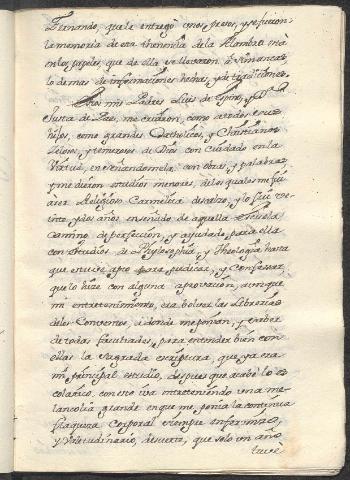 Fernando, que le entregò unos presos, y se hicieron
la memoria de esta thenencia de la Alhambra està
en los papeles, que de ella se llevaron à Simancas
lo demas de informaciones hechas, y de tradiciones.
mis Padres Luis de y D.ª
Justa de me criaron, como a todos sus
hijos, como grandes Catholicos, y Christianos
Zelosos, y temerosos de Dios con cuidado en la
Virtud, enseñandomela con obras, y palabras,
y me dieron estudios menores, de los quales me fui
à ser Religioso Carmelita descalzo, y lo fui ve-
inte, y dos años enseñado de aquella Escuela
camino de perfeccion, y ayudado para ella
con Estudios de Phylosophia, y Theologia hasta
que estuve apto para predicar, y confesar
que lo hize con alguna aprovacion, aunque
mi entretenimiento, era bolver las Librerias
de los Conventos, à donde me ponian, y saber
de todas facultades, para entender bien con
ellas la sagrada escriptura, que ya era
mi principal estudio, despues que acabè lo es-
colastico. con esto iva entreteniendo una me-
lancolia grande en que me ponia la continua
flaqueza corporal siempre enfermizo,
y Valetudinario, de suerte, que solo un año
tuve